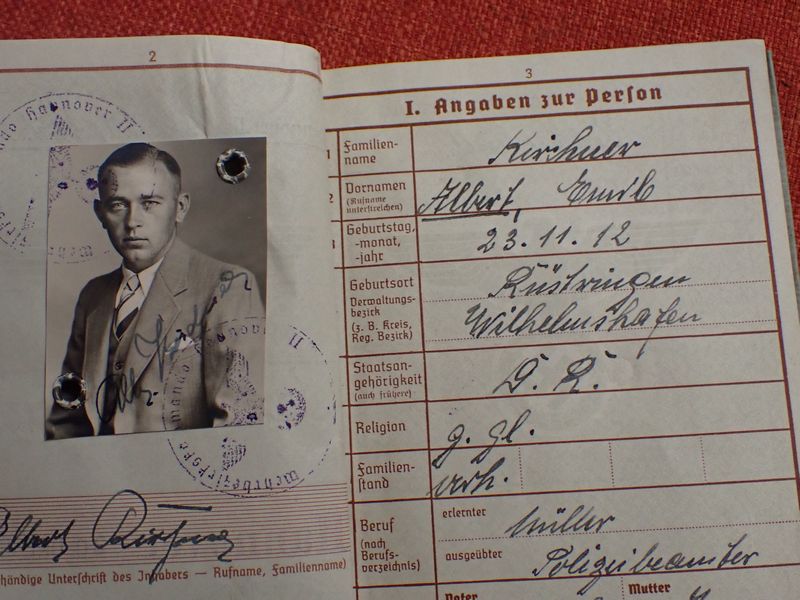 2
Hannover II
Wehrbezirksko
Hannover II
Albert Kirchner
händige Unterschrift des Inhabers — Rufname, Familienname)
3
I. Angaben zur Person
1 Familien-
name
Kirchner
2 Vornamen
(Rufname
unterstreichen)
Albert, Emil
3 Geburtstag,
-monat,
-jahr
23.11.12
Geburtsort
Verwaltungs-
bezirk
(z. B. Kreis,
Reg. Bezirk)
Rüstringen
Wilhelmshafen
Staatsan-
gehörigkeit
(auch frühere)
D. R.
Religion
g. gl.
Familien-
stand
verh.
Beruf
(nach
Berufs-
verzeichnis)
erlernter
Müller
ausgeübter
Polizeibeamter
Vater
Mutter